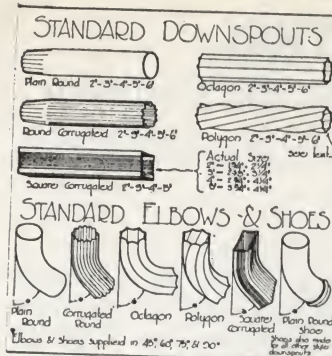 STANDARD DOWNSPOUTS
Plain Round 2"-3"-4"-5"-6"
Octagon 2"-3"-4"-5"-6"
Round Corrugated 2"-3"-4"-5"-6"
Polygon 2"-3"-4"-5"-6"
Square Corrugated 2"-3"-4"-5"
Actual Sizes
STANDARD ELBOWS & SHOES
Plain Round
Corrugated Round
Octagon
Polygon
Square Corrugated
Plain Round Shoe
Elbows & Shoes supplied in 45°, 60°, 75°, & 90°
Shoes also made for all other style downspouts